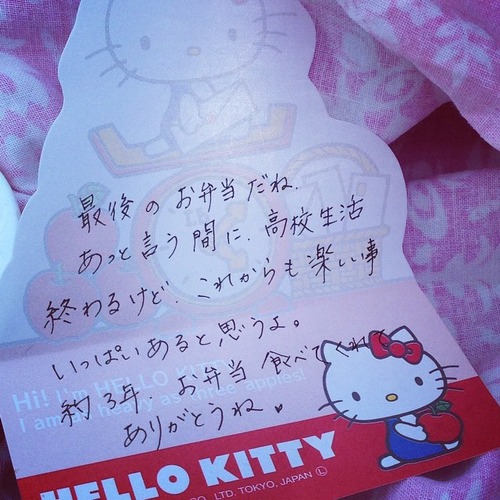 最後のお弁当だね.
あっと言う間に、高校生活
終わるけど、これからも楽しい事
いっぱいあると思うよ。
Hi! I'm HELLO KITTY
I am as heavy as three apples!
約3年、お弁当食べてくれて
ありがとうね♥
HELLO KITTY
CO., LTD. TOKYO, JAPAN Ⓛ